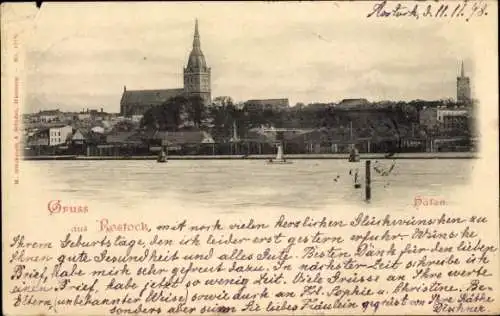 Rostock, d. 11.11.98.
Gruss
aus Rostock,
Hafen.
mit noch vielen herzlichen Glückwünschen zu
Ihrem Geburtstage, den ich leider erst gestern erfuhr. Wünsche
Ihnen gute Gesundheit und alles Gute. Besten Dank für den lieben
Brief, habe mich sehr gefreut dazu. In nächster Zeit schreibe ich
einen Brief, habe jetzt so wenig Zeit. Viele Grüsse an Ihre werte
Eltern (unbekannter Weise) sowie durch an Frl. Sophie u. Christine. Be-
sonders aber seien Sie liebes Fräulein gegrüsst von Ihre Käthe